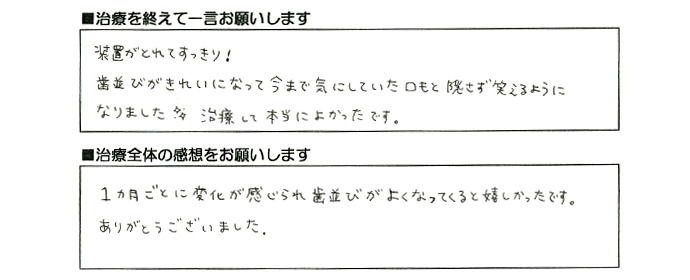 ■治療を終えて一言お願いします
装置がとれてすっきり!
歯並びがきれいになって今まで気にしていた口もと隠さず笑えるように
なりました 治療して本当によかったです。
■治療全体の感想をお願いします
1カ月ごとに変化が感じられ歯並びがよくなってくると嬉しかったです。
ありがとうございました.